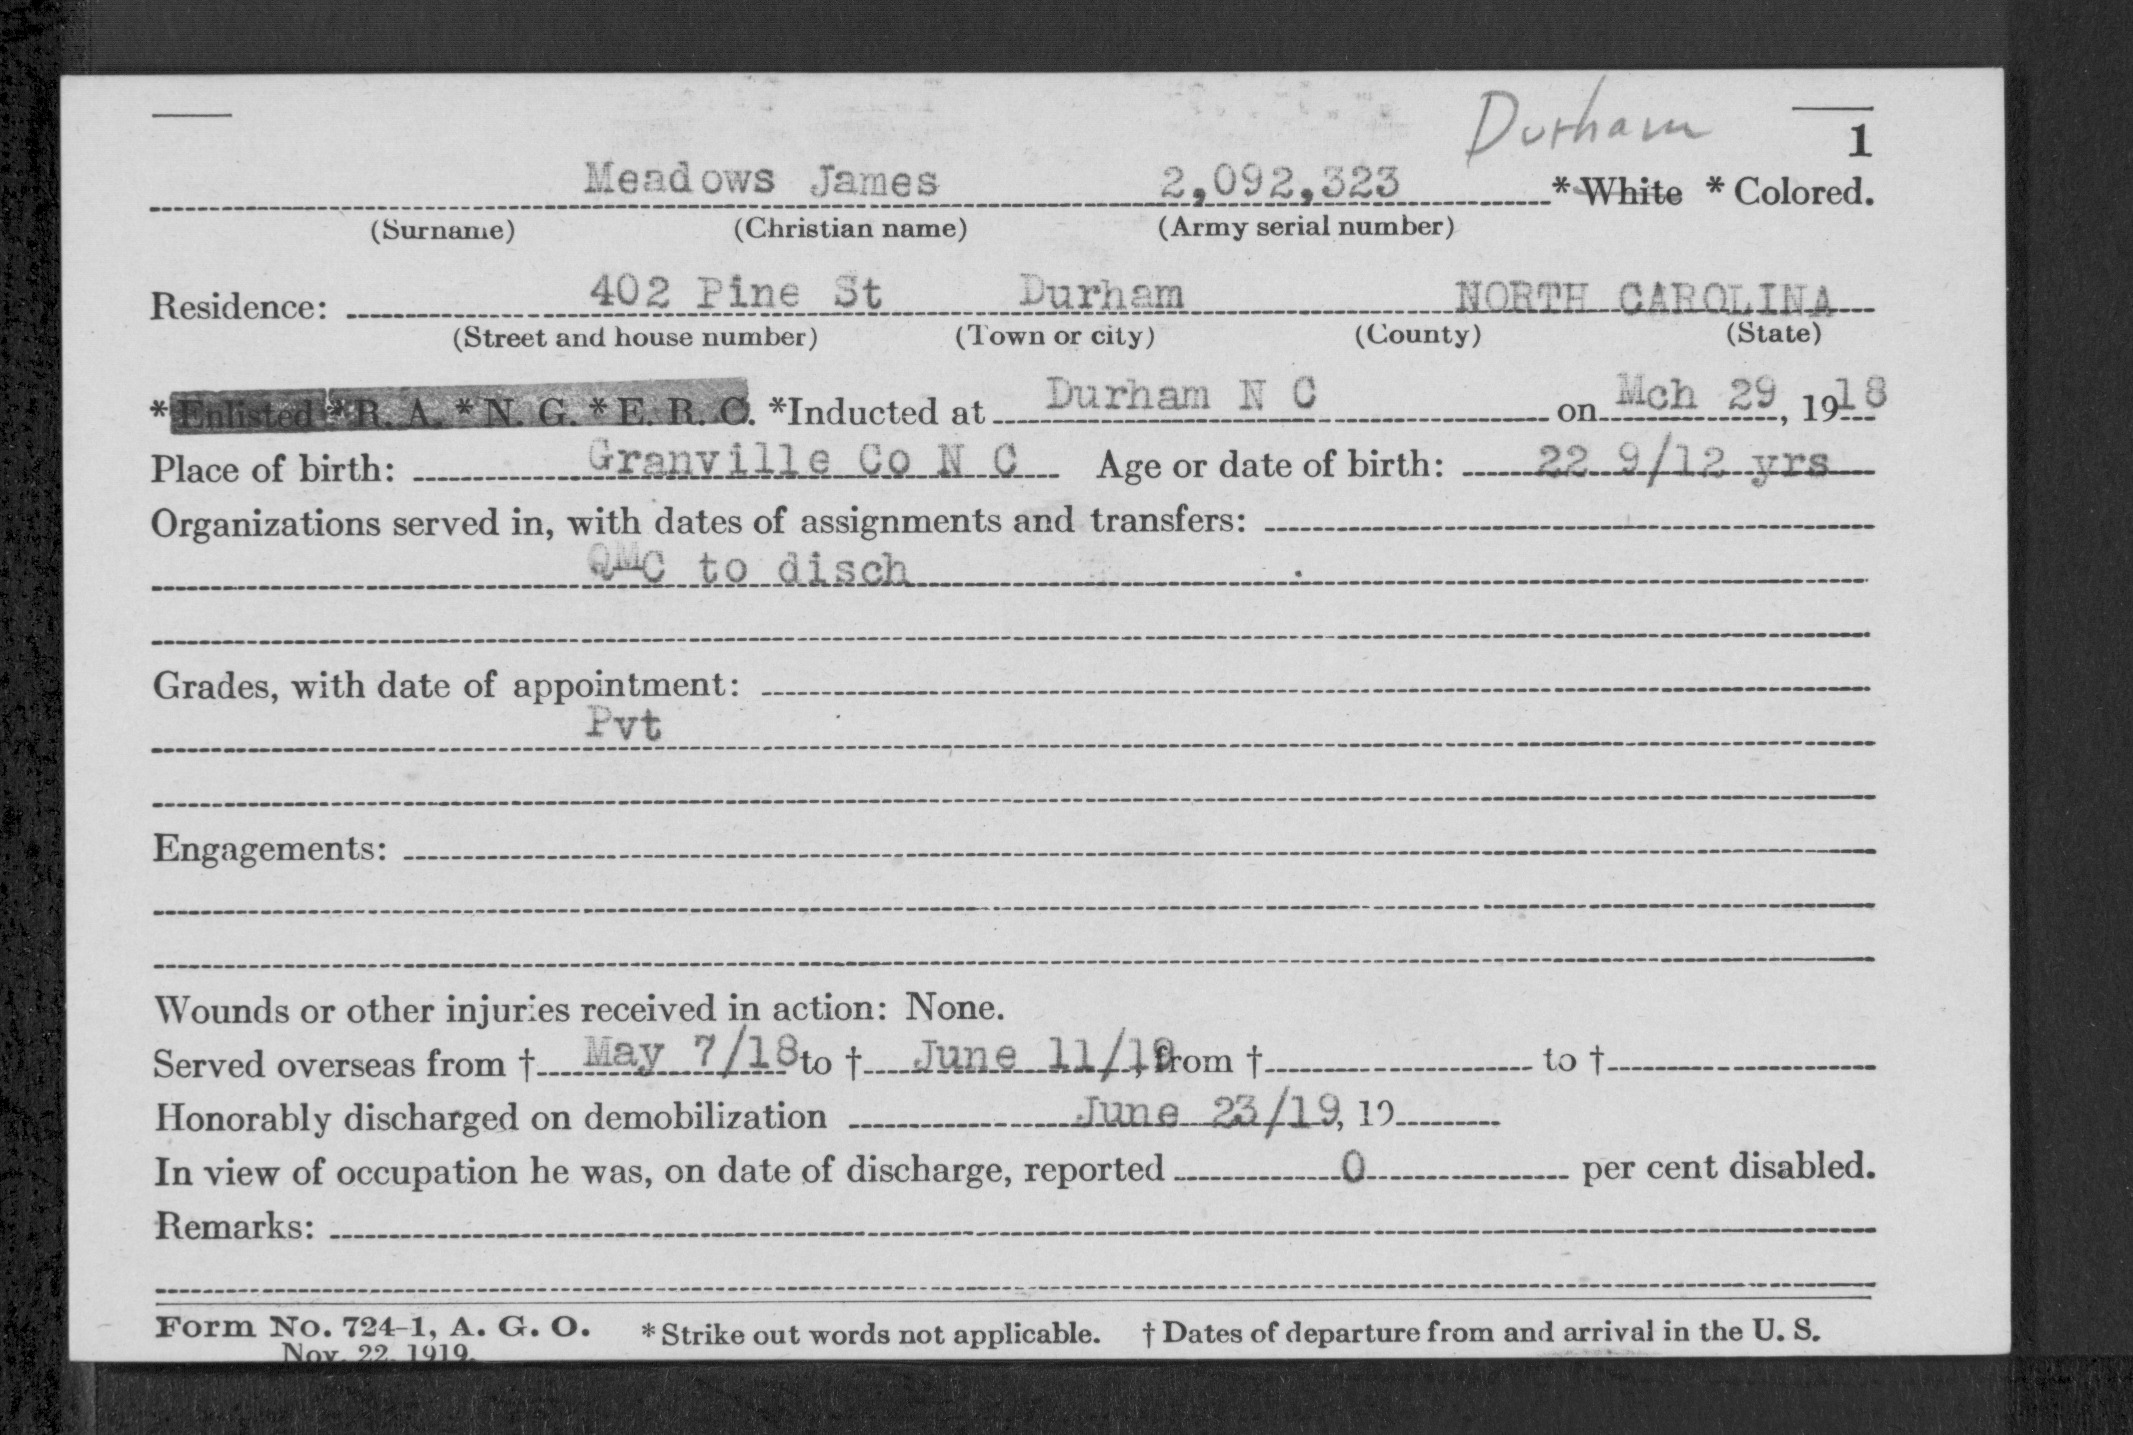 Durham
1
Meadows James 2,092,323 * White * Colored.
(Surname) (Christian name) (Army serial number)
Residence: 402 Pine St Durham NORTH CAROLINA
(Street and house number) (Town or city) (County) (State)
* Enlisted * R. A. * N. G. * E. R. C. *Inducted at Durham N C on Mch 29, 1918
Place of birth: Granville Co N C Age or date of birth: 22 9/12 yrs
Organizations served in, with dates of assignments and transfers:
QMC to disch
Grades, with date of appointment:
Pvt
Engagements:
Wounds or other injuries received in action: None.
Served overseas from † May 7/18 to † June 11/19, from † to †
Honorably discharged on demobilization June 23/19, 19
In view of occupation he was, on date of discharge, reported 0 per cent disabled.
Remarks:
Form No. 724-1, A. G. O. * Strike out words not applicable. † Dates of departure from and arrival in the U. S.
Nov. 22, 1919.